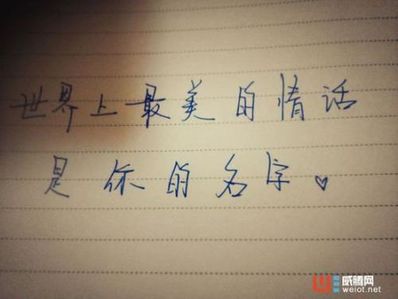 世界上最美的情话
是你的名字。♥
威腾网
weiot.net